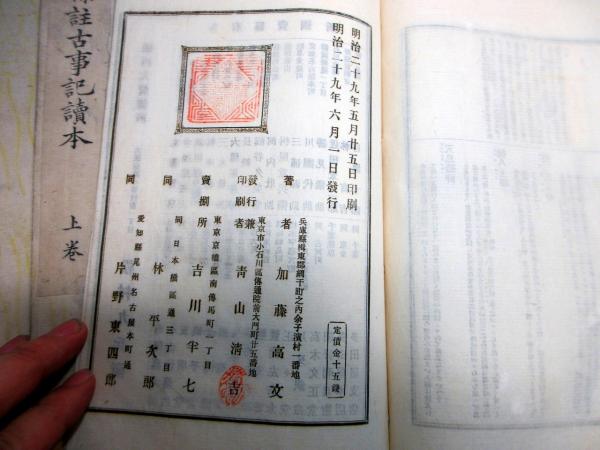 明治二十九年五月廿五日印刷
明治二十九年六月一日發行
定價金十五錢
兵庫縣揖東郡網干町之內余子濱村一番地
著者 加藤高文
東京市小石川區傳通院前大門町廿五番地
發行兼印刷者 青山淸吉
東京京橋區南傳馬町一丁目
賣捌所 吉川半七
同 日本橋區通三丁目
同 林平次郎
愛知縣尾州名古屋本町通
同 片野東四郎
註古事記讀本 上卷